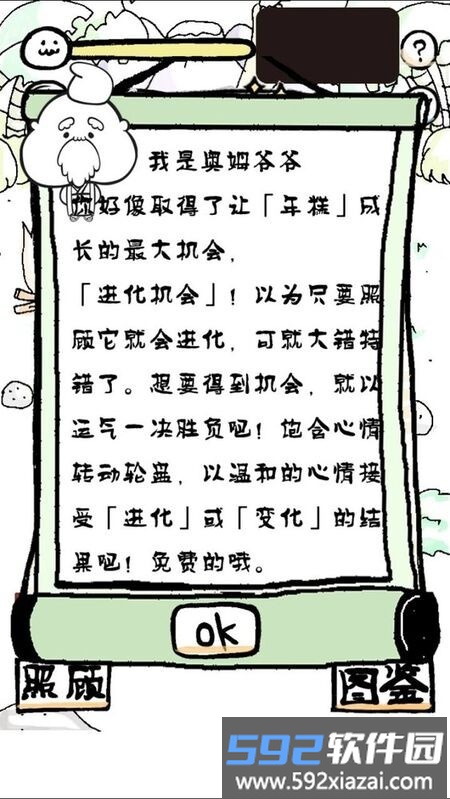 ?
我是奥姆爷爷
你好像取得了让「年糕」成
长的最大机会,
「进化机会」! 以为只要照
顾它就会进化, 可就大错特
错了。想要得到机会, 就以
运气一决胜负吧! 饱含心情
转动轮盘, 以温和的心情接
受「进化」或「变化」的结
果吧! 免费的哦。
OK
照顾
图鉴
592软件园
www.592xiazai.com